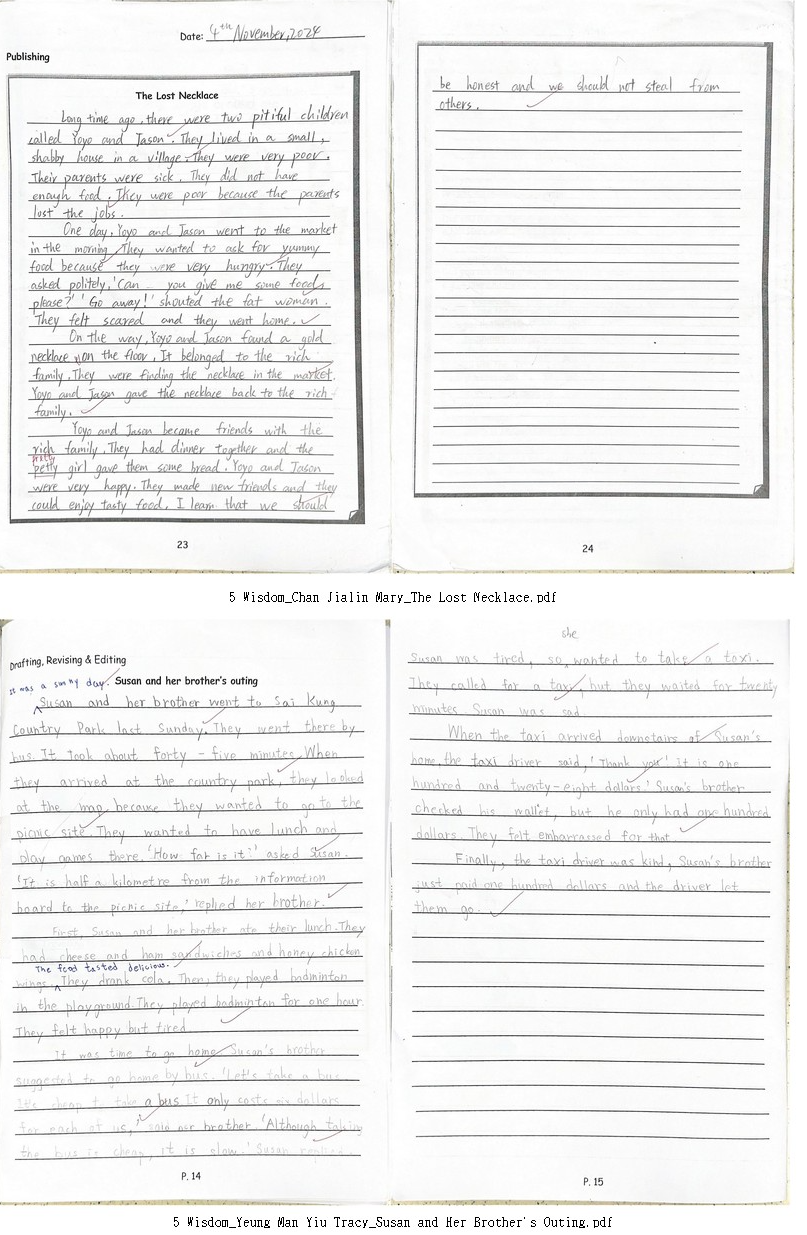 Date: 4th November, 2024
Publishing
The Lost Necklace
Long time ago, there were two pitiful children
called Yoyo and Jason. They lived in a small,
shabby house in a village. They were very poor.
Their parents were sick. They did not have
enough food. They were poor because the parents
lost the jobs.
One day, Yoyo and Jason went to the market
in the morning. They wanted to ask for yummy
food because they were very hungry. They
asked politely, 'Can you give me some food,
please?' 'Go away!' shouted the fat woman.
They felt scared and they went home.
On the way, Yoyo and Jason found a gold
necklace on the floor. It belonged to the rich
family. They were finding the necklace in the market.
Yoyo and Jason gave the necklace back to the rich
family.
Yoyo and Jason became friends with the
rich family. They had dinner together and the
pretty
petty girl gave them some bread. Yoyo and Jason
were very happy. They made new friends and they
could enjoy tasty food. I learn that we should
23
be honest and we should not steal from
others.
24
5 Wisdom_Chan Jialin Mary_The Lost Necklace.pdf
Drafting, Revising & Editing
It was a sunny day.
Susan and her brother's outing
Susan and her brother went to Sai Kung
Country Park last Sunday. They went there by
bus. It took about forty-five minutes. When
they arrived at the country park, they looked
at the map because they wanted to go to the
picnic site. They wanted to have lunch and
play games there. 'How far is it?' asked Susan.
'It is half a kilometre from the information
board to the picnic site,' replied her brother.
First, Susan and her brother ate their lunch. They
had cheese and ham sandwiches and honey chicken
The food tasted delicious.
wings. They drank cola. Then, they played badminton
in the playground. They played badminton for one hour.
They felt happy but tired.
It was time to go home. Susan's brother
suggested to go home by bus. 'Let's take a bus.
It's cheap to take a bus. It only costs six dollars
for each of us,' said her brother. 'Although taking
the bus is cheap, it is slow.' Susan replied.
P. 14
she
Susan was tired, so wanted to take a taxi.
They called for a taxi, but they waited for twenty
minutes. Susan was sad.
When the taxi arrived downstairs of Susan's
home, the taxi driver said, 'Thank you! It is one
hundred and twenty-eight dollars.' Susan's brother
checked his wallet, but he only had one hundred
dollars. They felt embarrassed for that.
Finally, the taxi driver was kind, Susan's brother
just paid one hundred dollars and the driver let
them go.
P. 15
5 Wisdom_Yeung Man Yiu Tracy_Susan and Her Brother's Outing.pdf